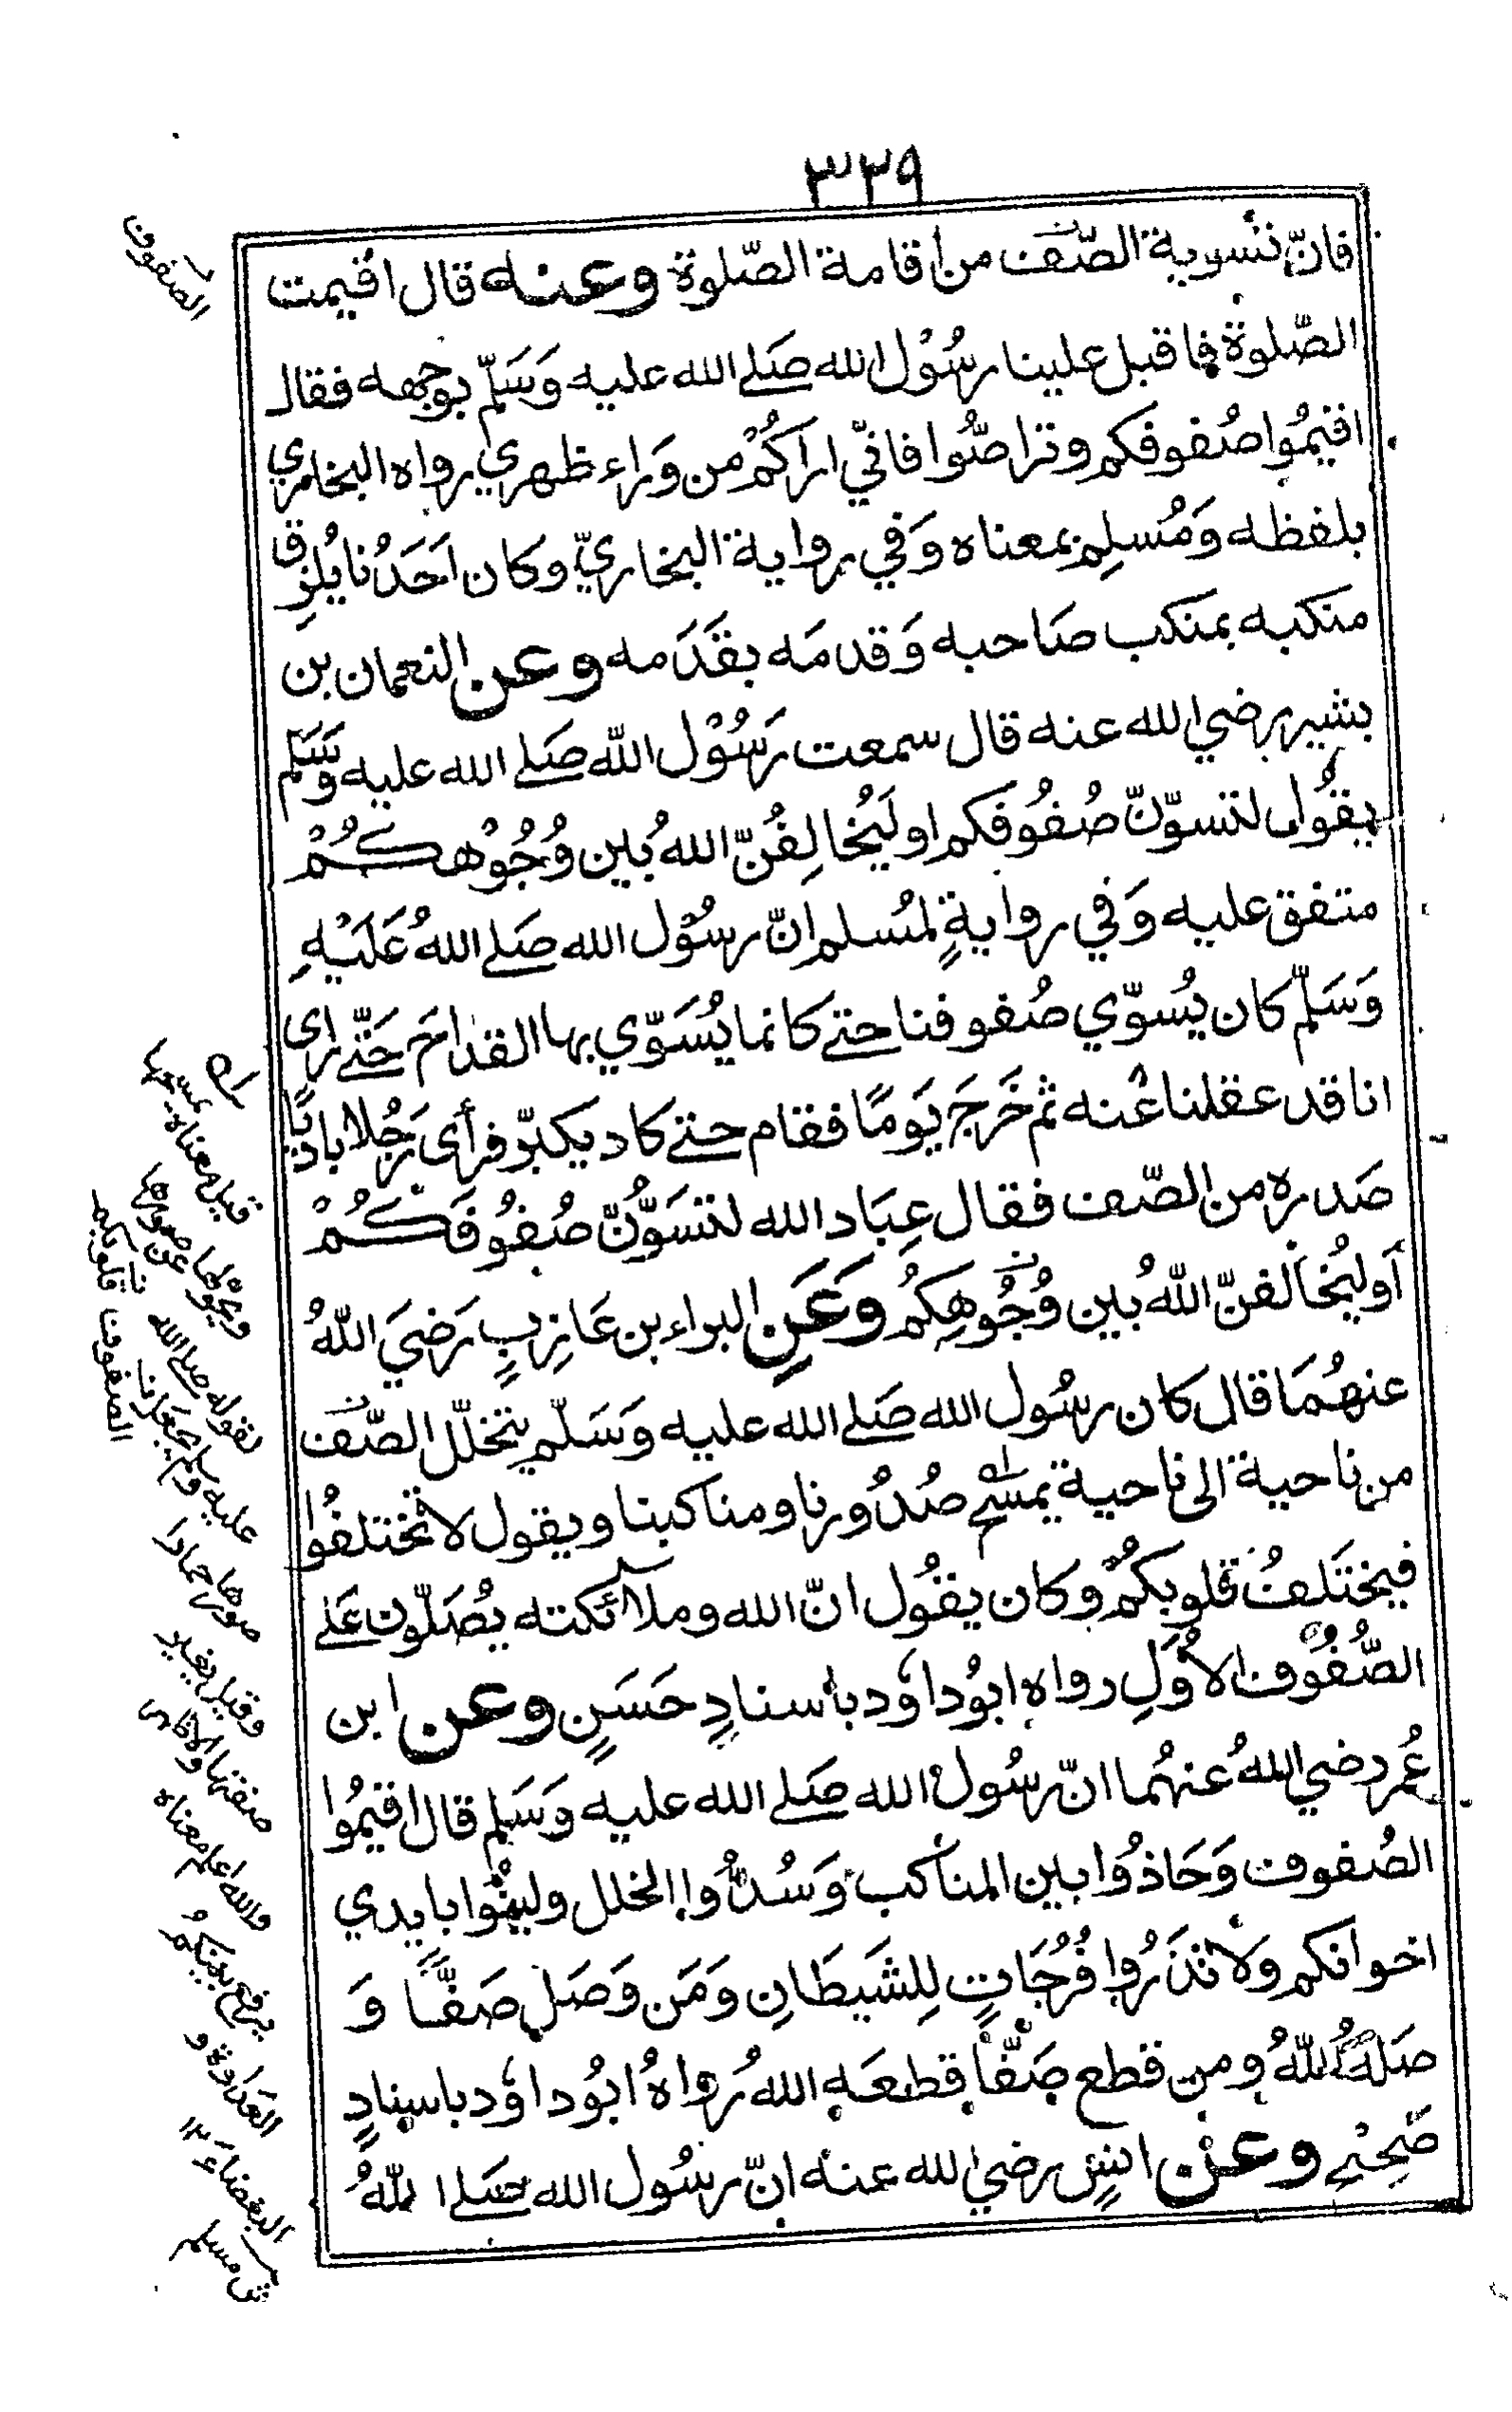 ٣٣٩
فانّ تسوية الصّف من اقامة الصّلوة وعنه قال اقيمت
الصّلوة فاقبل علينا رسُوْل الله صَلے الله عليه وَسَلّم بوجهه فقال
اقيمُوا صُفوفكم وتراصُّوا فانّي اراكُمْ من وَراء ظهري رواه البخاري
بلفظه وَمُسلِم بمعناه وَفي رواية البخاريّ وكان اَحَدُنا يُلزِق
منكبه بمنكب صَاحبه وَقدمَه بقَدَمه وعن النعمان بن
بشير رضي الله عنه قال سمعت رَسُوْل الله صَلے الله عليه وَسَلّم
يقُول لتسوّنّ صُفُوفكم او ليُخالِفُنّ اللهُ بين وُجُوْهكُمْ
متفق عليه وَفي روايةٍ لمُسلم انّ رسُوْل الله صَلے اللهُ عَلَيْهِ
وَسَلّم كان يُسوّي صُفوفنا حتے كانما يُسَوّي بها القداحَ حَتّے رای
انا قد عقلنا عنه ثم خَرَجَ يَومًا فقام حتے كاد يكبّر فرأى رَجُلا باديًا
صَدره من الصّف فقال عِبَاد الله لتسَوُّنّ صُفُوفَكُمْ
أو ليُخالفنّ اللهُ بين وُجُوهِكُمُ وَعَنِ البراء بن عَازِبٍ رَضيَ اللهُ
عنهُمَا قال كان رسُول الله صَلے الله عليه وَسَلّم يتخلّل الصّف
من ناحية الى ناحية يمسَح صُدُورنا ومناكبنا ويقول لا تختلفُوا
فيختَلفُ قلوبكُمْ وكان يقُول انّ الله وملائكته يُصَلّون عَلے
الصُّفُوف الأوَلِ رواه ابوُداوٗد باسنادٍ حَسَنٍ وعن ابن
عُمر رضي اللهُ عنهُما انّ رسُول الله صَلے الله عليه وَسَلم قال اقيمُوا
الصُفوف وَحَاذوُا بين المناكب وَسُدُّوا الخلل ولينُوْا بايدي
اخوانكم وَلا تذَرُوا فُرُجَاتٍ لِلشَيطَانِ وَمَن وَصَل صَفًّا وَ
صَلَهُ اللهُ ومن قطع صَفًّا قطعَه اللهُ رواهُ ابوُداوٗد باسنادٍ
صَحِيْح وعن انسٍ رضي الله عنه انّ رسُول الله صَلے اللهُ
الصفوف
قيل معناه يمسخها
ويحوّلها عن صورها
لقوله صلے الله
عليه وسلم
صورة حمار
وقيل يغير
صفتها
والله اعلم معناه
يوقع بينكمُ
العَدَاوة و
البغضاء ١٢
ش مسلم
قلوبكم
الصفوف